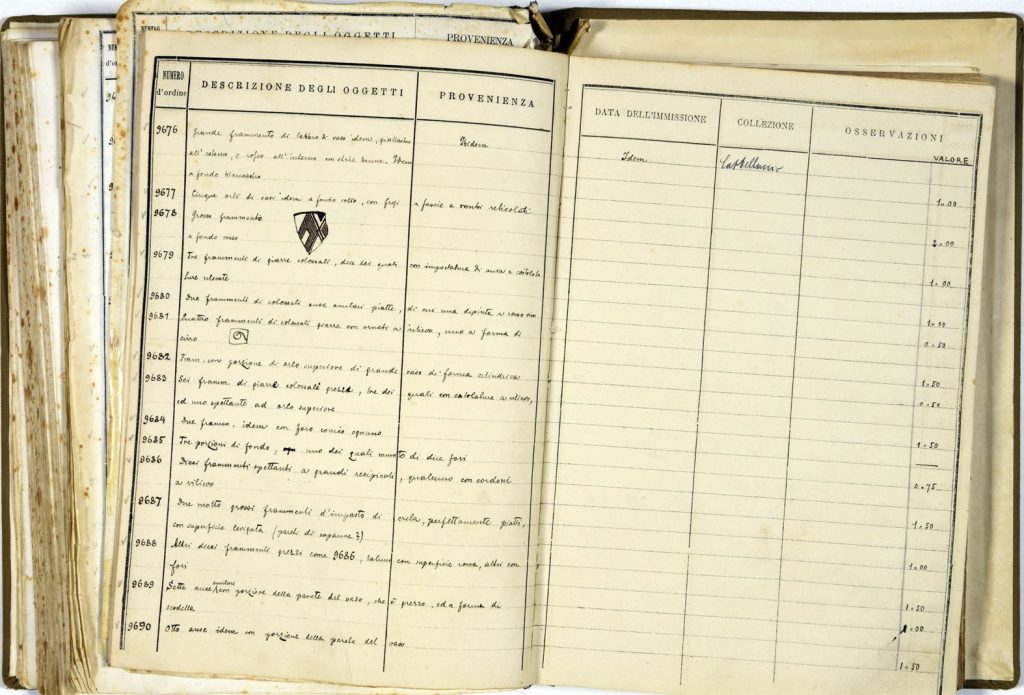 DESCRIZIONE DEGLI OGGETTI PROVENIENZA
NUMERO d'ordine DESCRIZIONE DEGLI OGGETTI PROVENIENZA DATA DELL'IMMISSIONE COLLEZIONE OSSERVAZIONI
VALORE
9676 Grande frammento di vaso idem, giallastro Ibidem Idem
all'esterno, e rosso all'interno con strie brune. Idem
a fondo biancastro 1=00
9677 Cinque orli di vasi idem a fondo rosso, con fregi a fascie e rombi reticolati
9678 Grosso frammento 2=00
a fondo rosso
9679 Tre frammenti di giarre colossali, due dei quali con impostatura di ansa e costola 1=00
ture rilevate
9680 Due frammenti di colossali anse anulari piatte, di cui una depinta a rosso 1=00
9681 Quattro frammenti di colossali giarre con ornati a rilievo, uno a forma di 0=50
9682 Fram. con porzione di orlo superiore di grande vaso di forma cilindrica 1=50
9683 Sei framm. di giarre colossali grezze, tre dei quali con costolature a rilievo, 0=50
ed uno spettante ad orlo superiore
9684 Due framm. idem con foro conico ognuno 1=50
9685 Tre porzioni di fondo, uno dei quali munito di due fori
9686 Dieci frammenti spettanti a grandi recipienti, qualcuno con cordoni 0=75
a rilievo
9687 Due molto grossi frammenti d'impasto di creta, perfettamente piatti, 1=50
con superficie levigata (pareti di capanne?)
9688 Altri dieci frammenti grezzi come 9686, taluni con superficie rossa, altri con 1=00
fori
9689 Sette anse anulari con porzione della parete del vaso, che è grezzo, ed a forma di 1=50
scodella
9690 Otto anse idem con porzione della parete del vaso
1=50